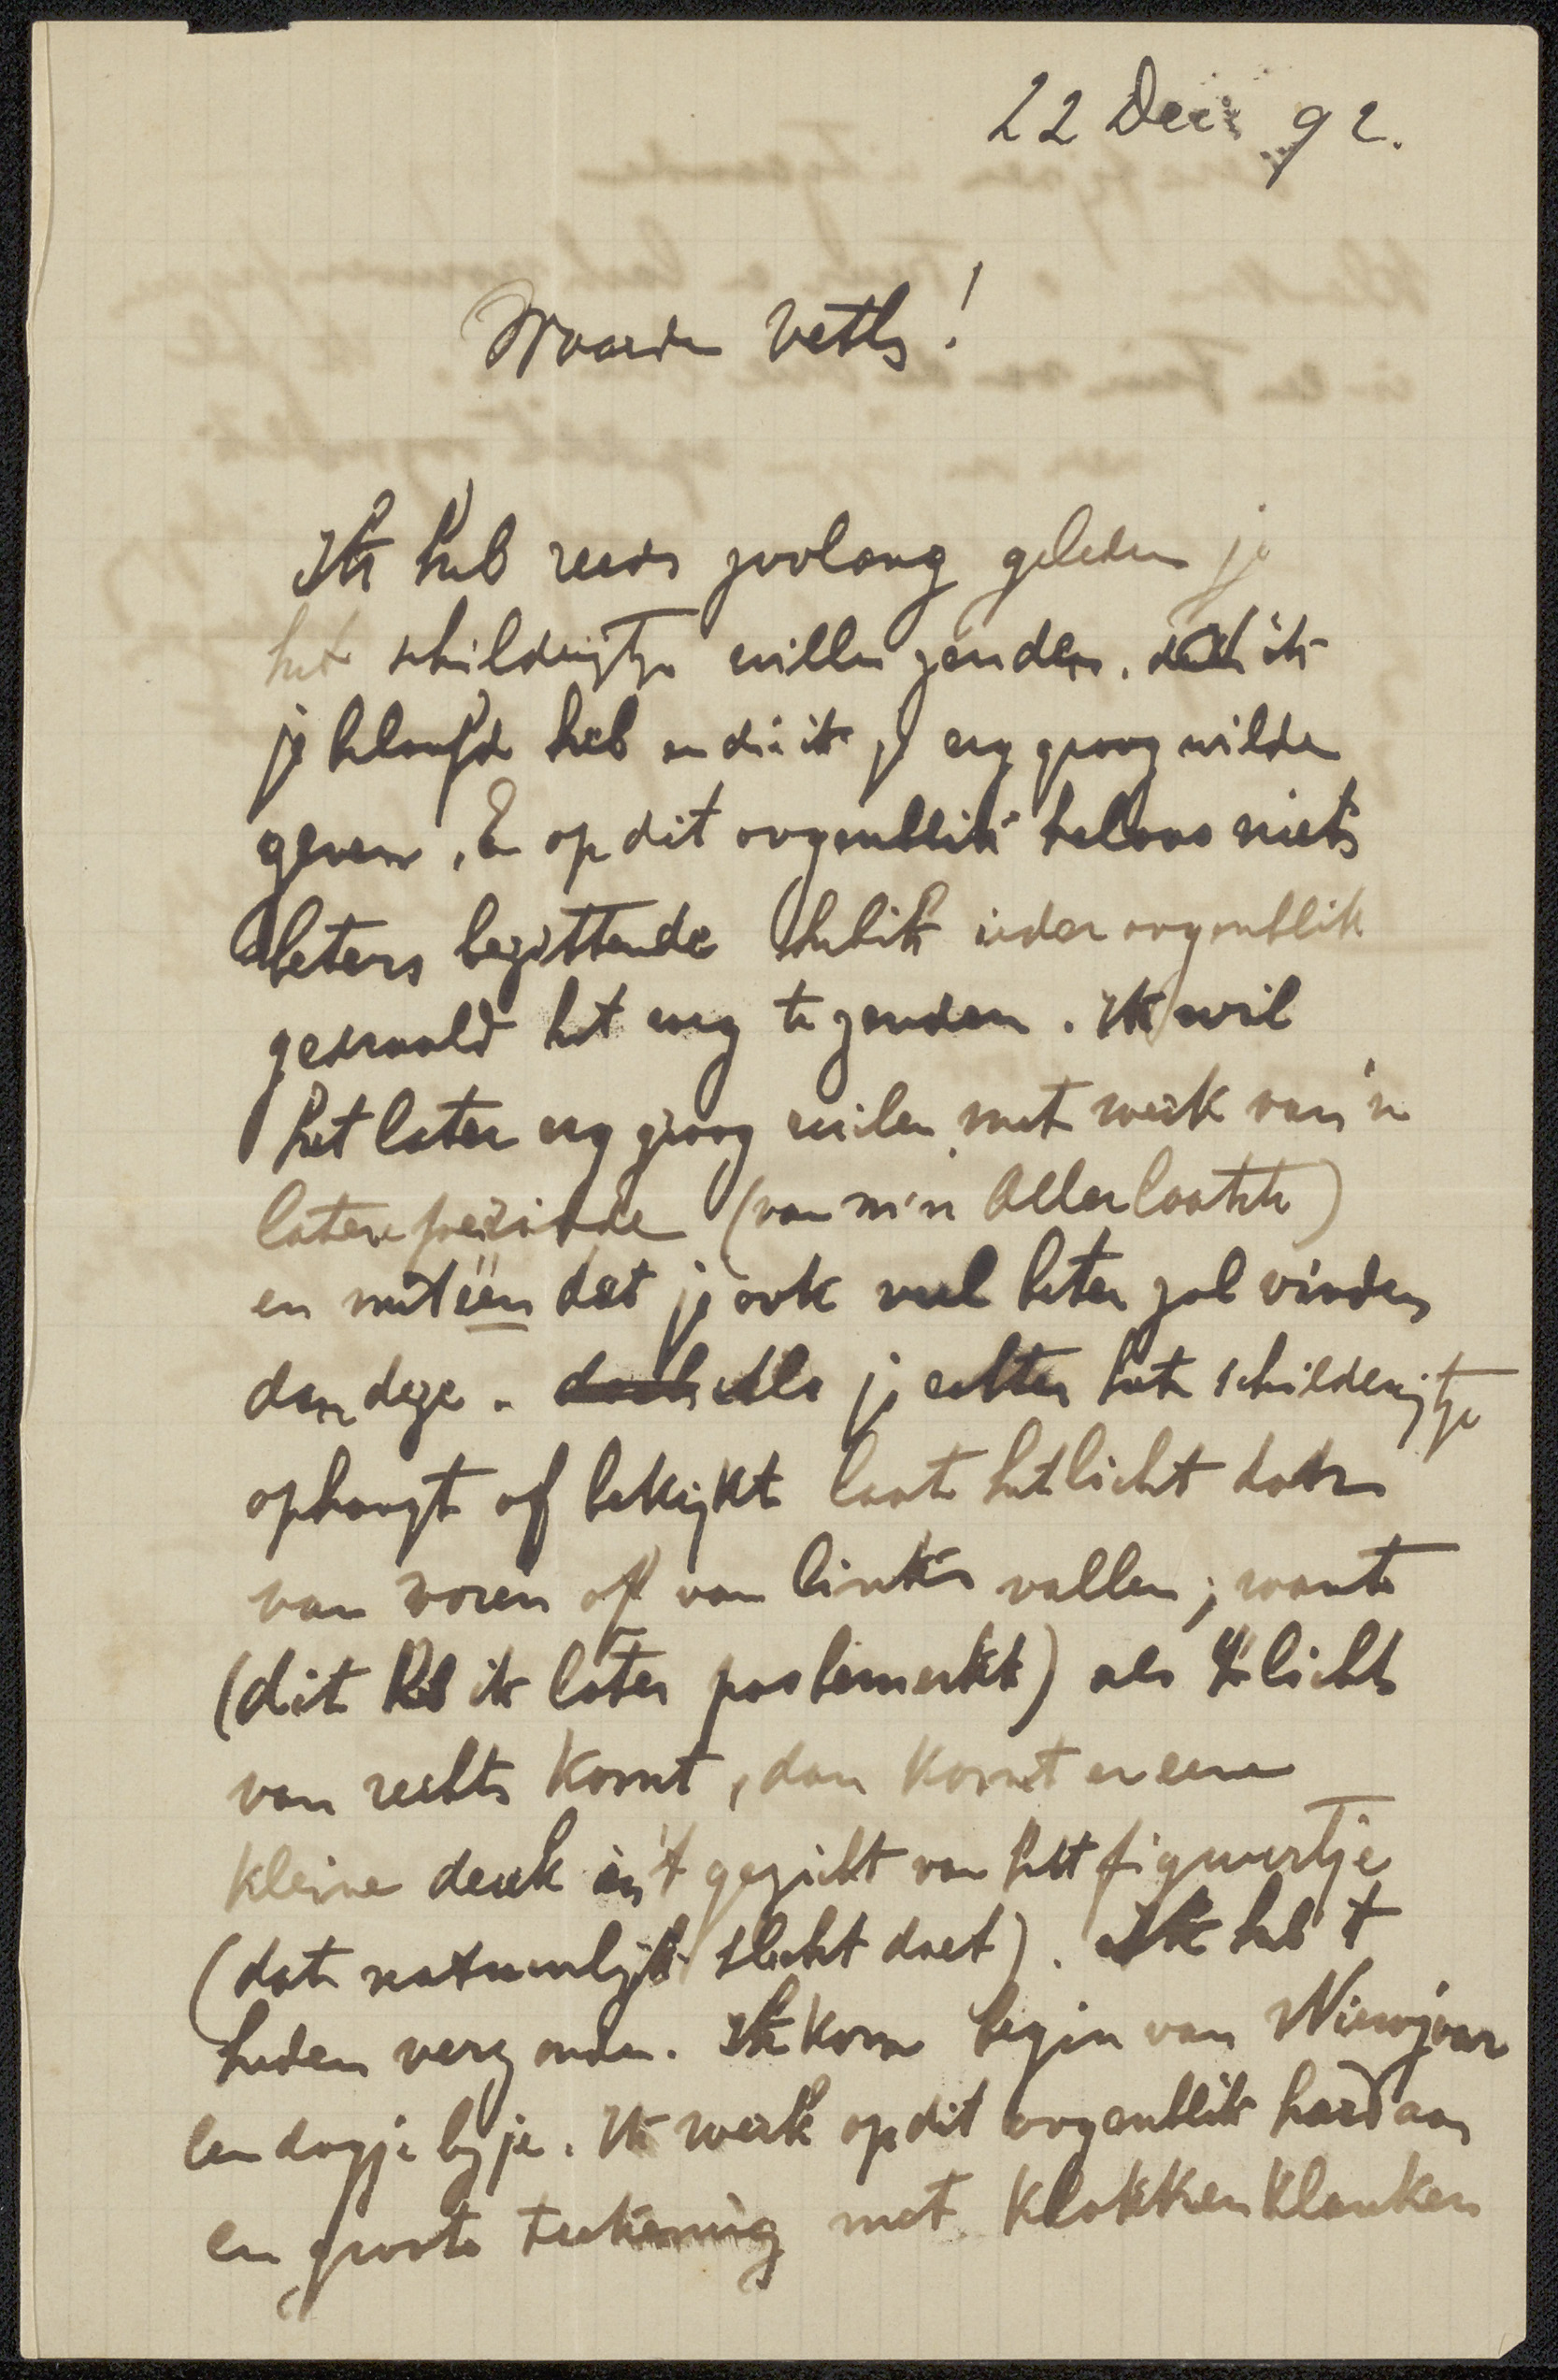 22 Dec 92.
Waarde Veth!
Ik heb reeds zoolang geleden je
het schilderijtje willen zenden. dat ik
je beloofde heb en die ik je erg graag wilde
geven. En op dit oogenblik helaas niets
beters bezittende heb ik ieder oogenblik
gedraald het weg te zenden. Ik wil
het later erg graag ruilen met werk van 'n
latere periode (van m'n allerlaatste)
en met één dat je ook veel beter zal vinden
dan deze. Als je echter het schilderijtje
ophangt of bekijkt laat het licht dan
van voren of van links vallen; want
(dit heb ik later pas bemerkt) als 't licht
van rechts komt, dan komt er een
kleine deuk in 't gezicht van het figuurtje
(dat natuurlijk slecht doet). Ik heb 't
heden verzonden. Ik kom begin van Nieuwjaar
een dagje bij je. Ik werk op dit oogenblik hard aan
en groote teekening met klokkenklanken